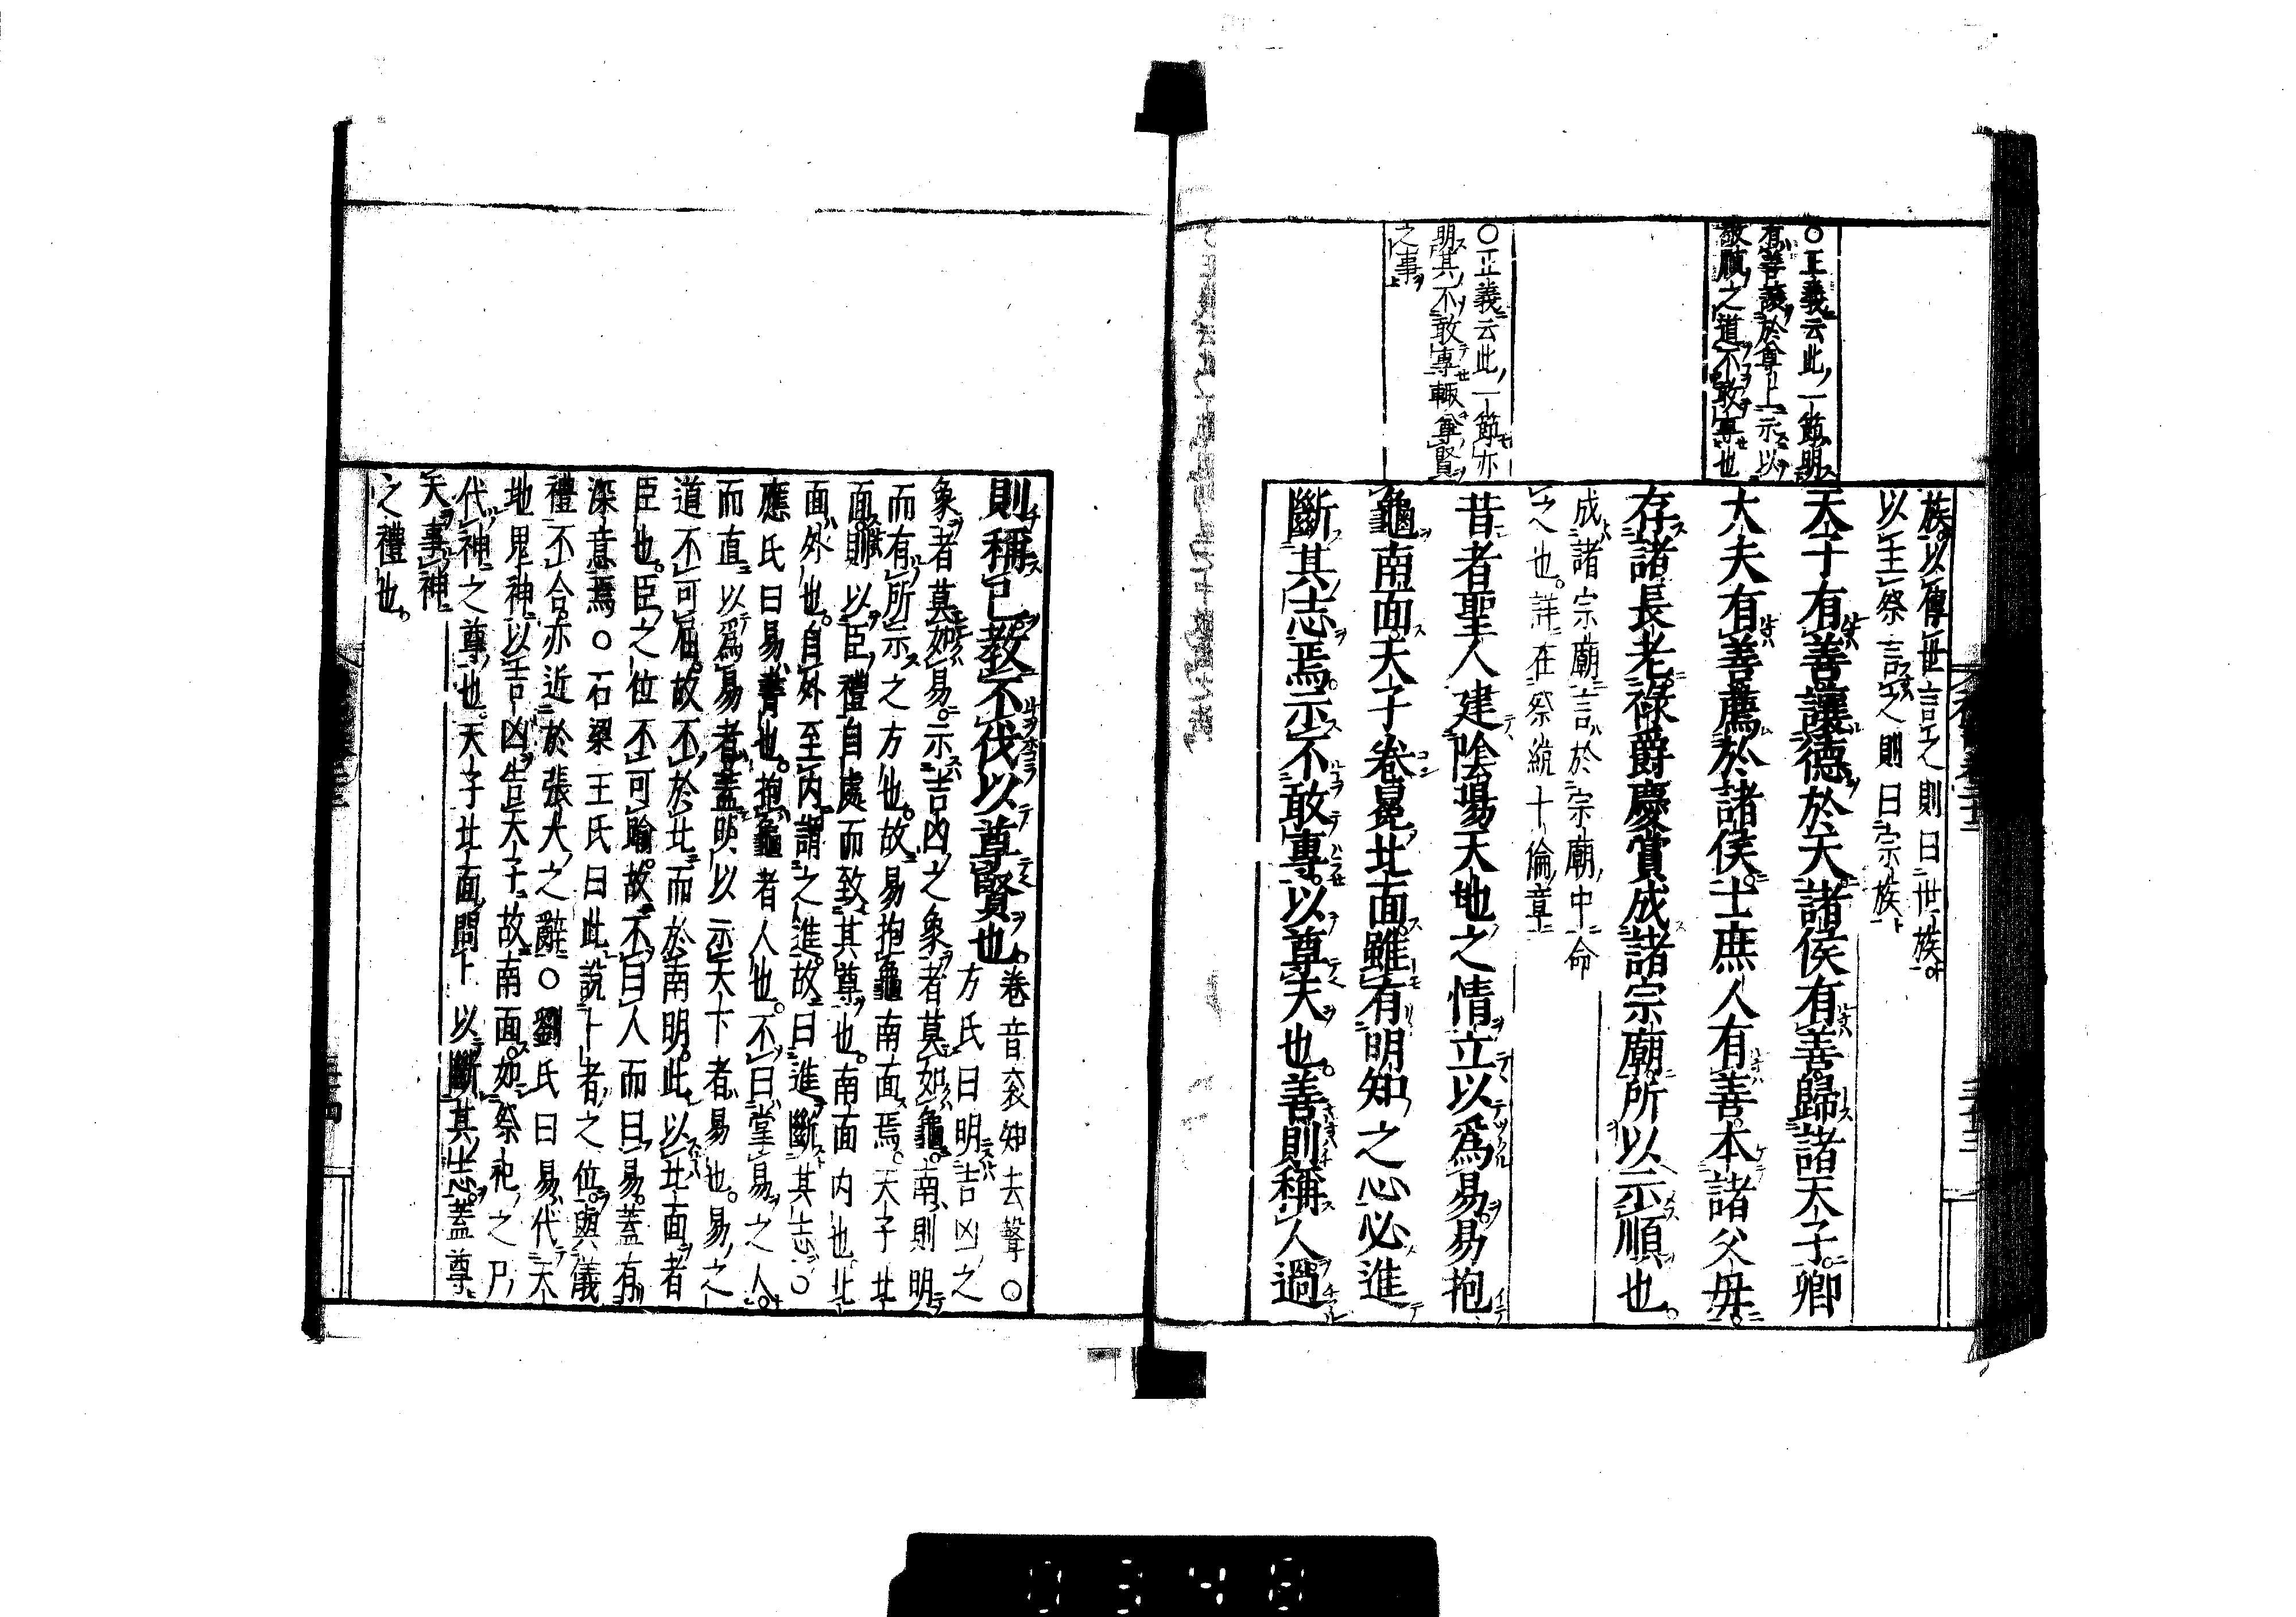 族以傳世言之則曰世族
以主祭言之則曰宗族
○正義云此一節明
有善讓於尊上示以
敬順之道不敢專也
天子有善讓德於天諸侯有善歸諸天子卿
大夫有善薦於諸侯士庶人有善本諸父母
存諸長老祿爵慶賞成諸宗廟所以示順也
成諸宗廟言於宗廟中命
之也詳在祭統十倫章
○正義云此一節亦
明其不敢專輙尊賢
之事
昔者聖人建陰陽天地之情立以爲易易抱
龜南面天子卷冕北面雖有明知之心必進
斷其志焉示不敢專以尊天也善則稱人過
則稱己教不伐以尊賢也卷音袞知去聲○
方氏曰明吉凶之
象者莫如易示吉凶之象者莫如龜南則明
而有所示之方也故易抱龜南面焉天子北
面則以臣禮自處而致其尊也南面内也北
面外也自外至内謂之進故曰進斷其志○
應氏曰易書也抱龜者人也不曰掌易之人
而直以爲易者蓋明以示天下者易也易之
道不可屈故不於北而於南明此以北面者
臣也臣之位不可踰故不曰人而曰易蓋有
深意焉○石梁王氏曰此說卜者之位與儀
禮不合亦近於張大之辭○劉氏曰易代天
地鬼神以吉凶告天子故南面如祭祀之尸
代神之尊也天子北面問卜以斷其志蓋尊
天事神
之禮也